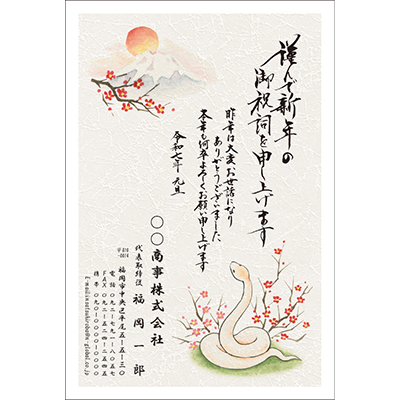 謹んで新年の
御祝詞を申し上げます
昨年は大変お世話になり
ありがとうございました
本年も何卒よろしくお願い申し上げます
令和七年 元旦
〇〇商事株式会社
代表取締役 福岡一郎
〒810-0014
福岡市中央区平尾五-五-三〇
電話 〇九二-七九一-八〇五七
FAX 〇九二-五二四-二五四五
携帯 〇九〇-〇〇〇〇-〇〇〇〇